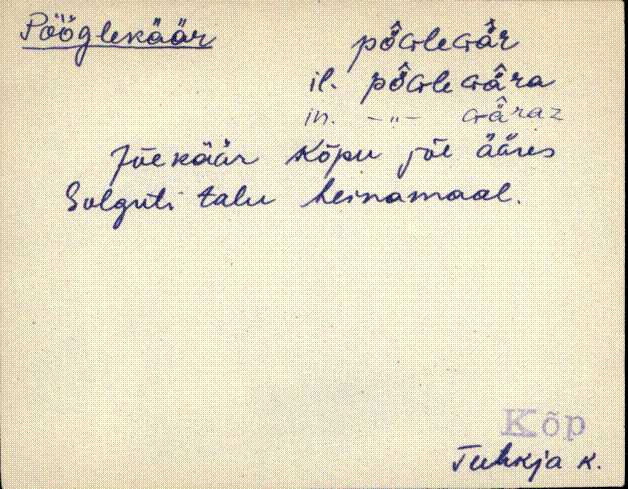 Pööglekäär pö̂ɢleɢär̂
il. pö̂ɢleɢä̂ra
in. -"- ɢä̂raz
Jõekäär Kõpu jõe ääres
Solguti talu heinamaal.
Kõp
Tuhkja k.